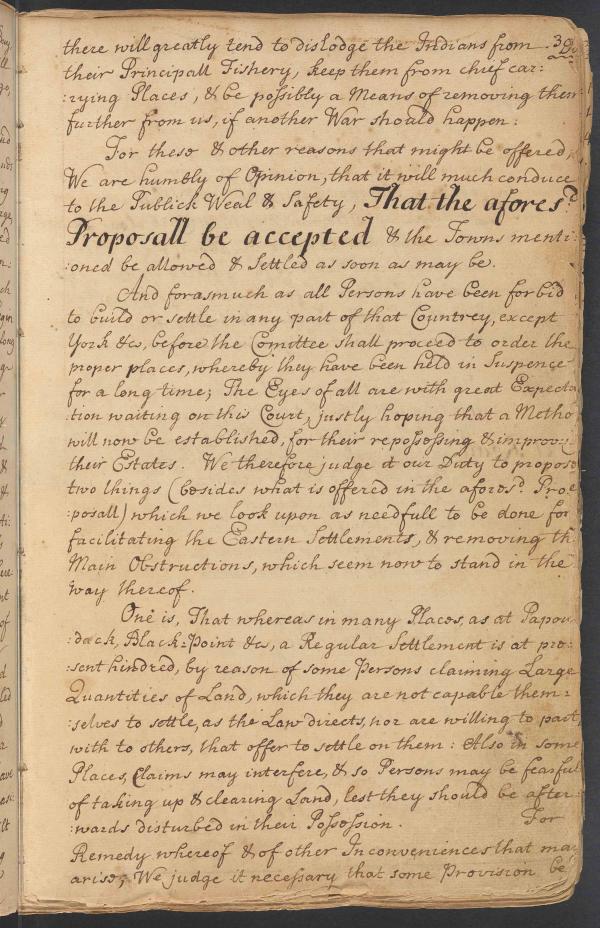 there will greatly tend to dislodge the Indians from 39.
their Principall Fishery, keep them from chief car:
:rying Places, & be possibly a Means of removing them
further from us, if another War should happen:
For these & other reasons that might be offered,
We are humbly of Opinion, that it will much conduce
to the Publick Weal & Safety, That the afores.d
Proposall be accepted & the Towns menti:
:oned be allowed & Settled as soon as may be.
And forasmuch as all Persons have been forbid
to build or settle in any part of that Countrey, except
York &c, before the Comittee shall proceed to order the
proper places, whereby they have been held in Suspence
for a long time; The Eyes of all are with great Expecta
:tion waiting on this Court, justly hoping that a Metho
will now be established, for their repossessing & improvi
their Estates. We therefore judge it our Duty to propose
two things (besides what is offered in the afores.d Pro:
:posall) which we look upon as needfull to be done for
facilitating the Eastern Settlements, & removing th
Main Obstructions, which seem now to stand in the
way thereof.
One is, That whereas in many Places, as at Papou
:dack, Black-Point &c, a Regular Settlement is at pre:
:sent hindred, by reason of some Persons claiming Large
Quantities of Land, which they are not capable them:
:selves to settle, as the Law directs, nor are willing to part
with to others, that offer to settle on them: Also in some
Places, Claims may interfere, & so Persons may be fearful
of taking up & clearing Land, lest they should be after:
:wards disturbed in their Possession. For
Remedy whereof & of other Inconveniences that may
arise, We judge it necessary that some Provision be